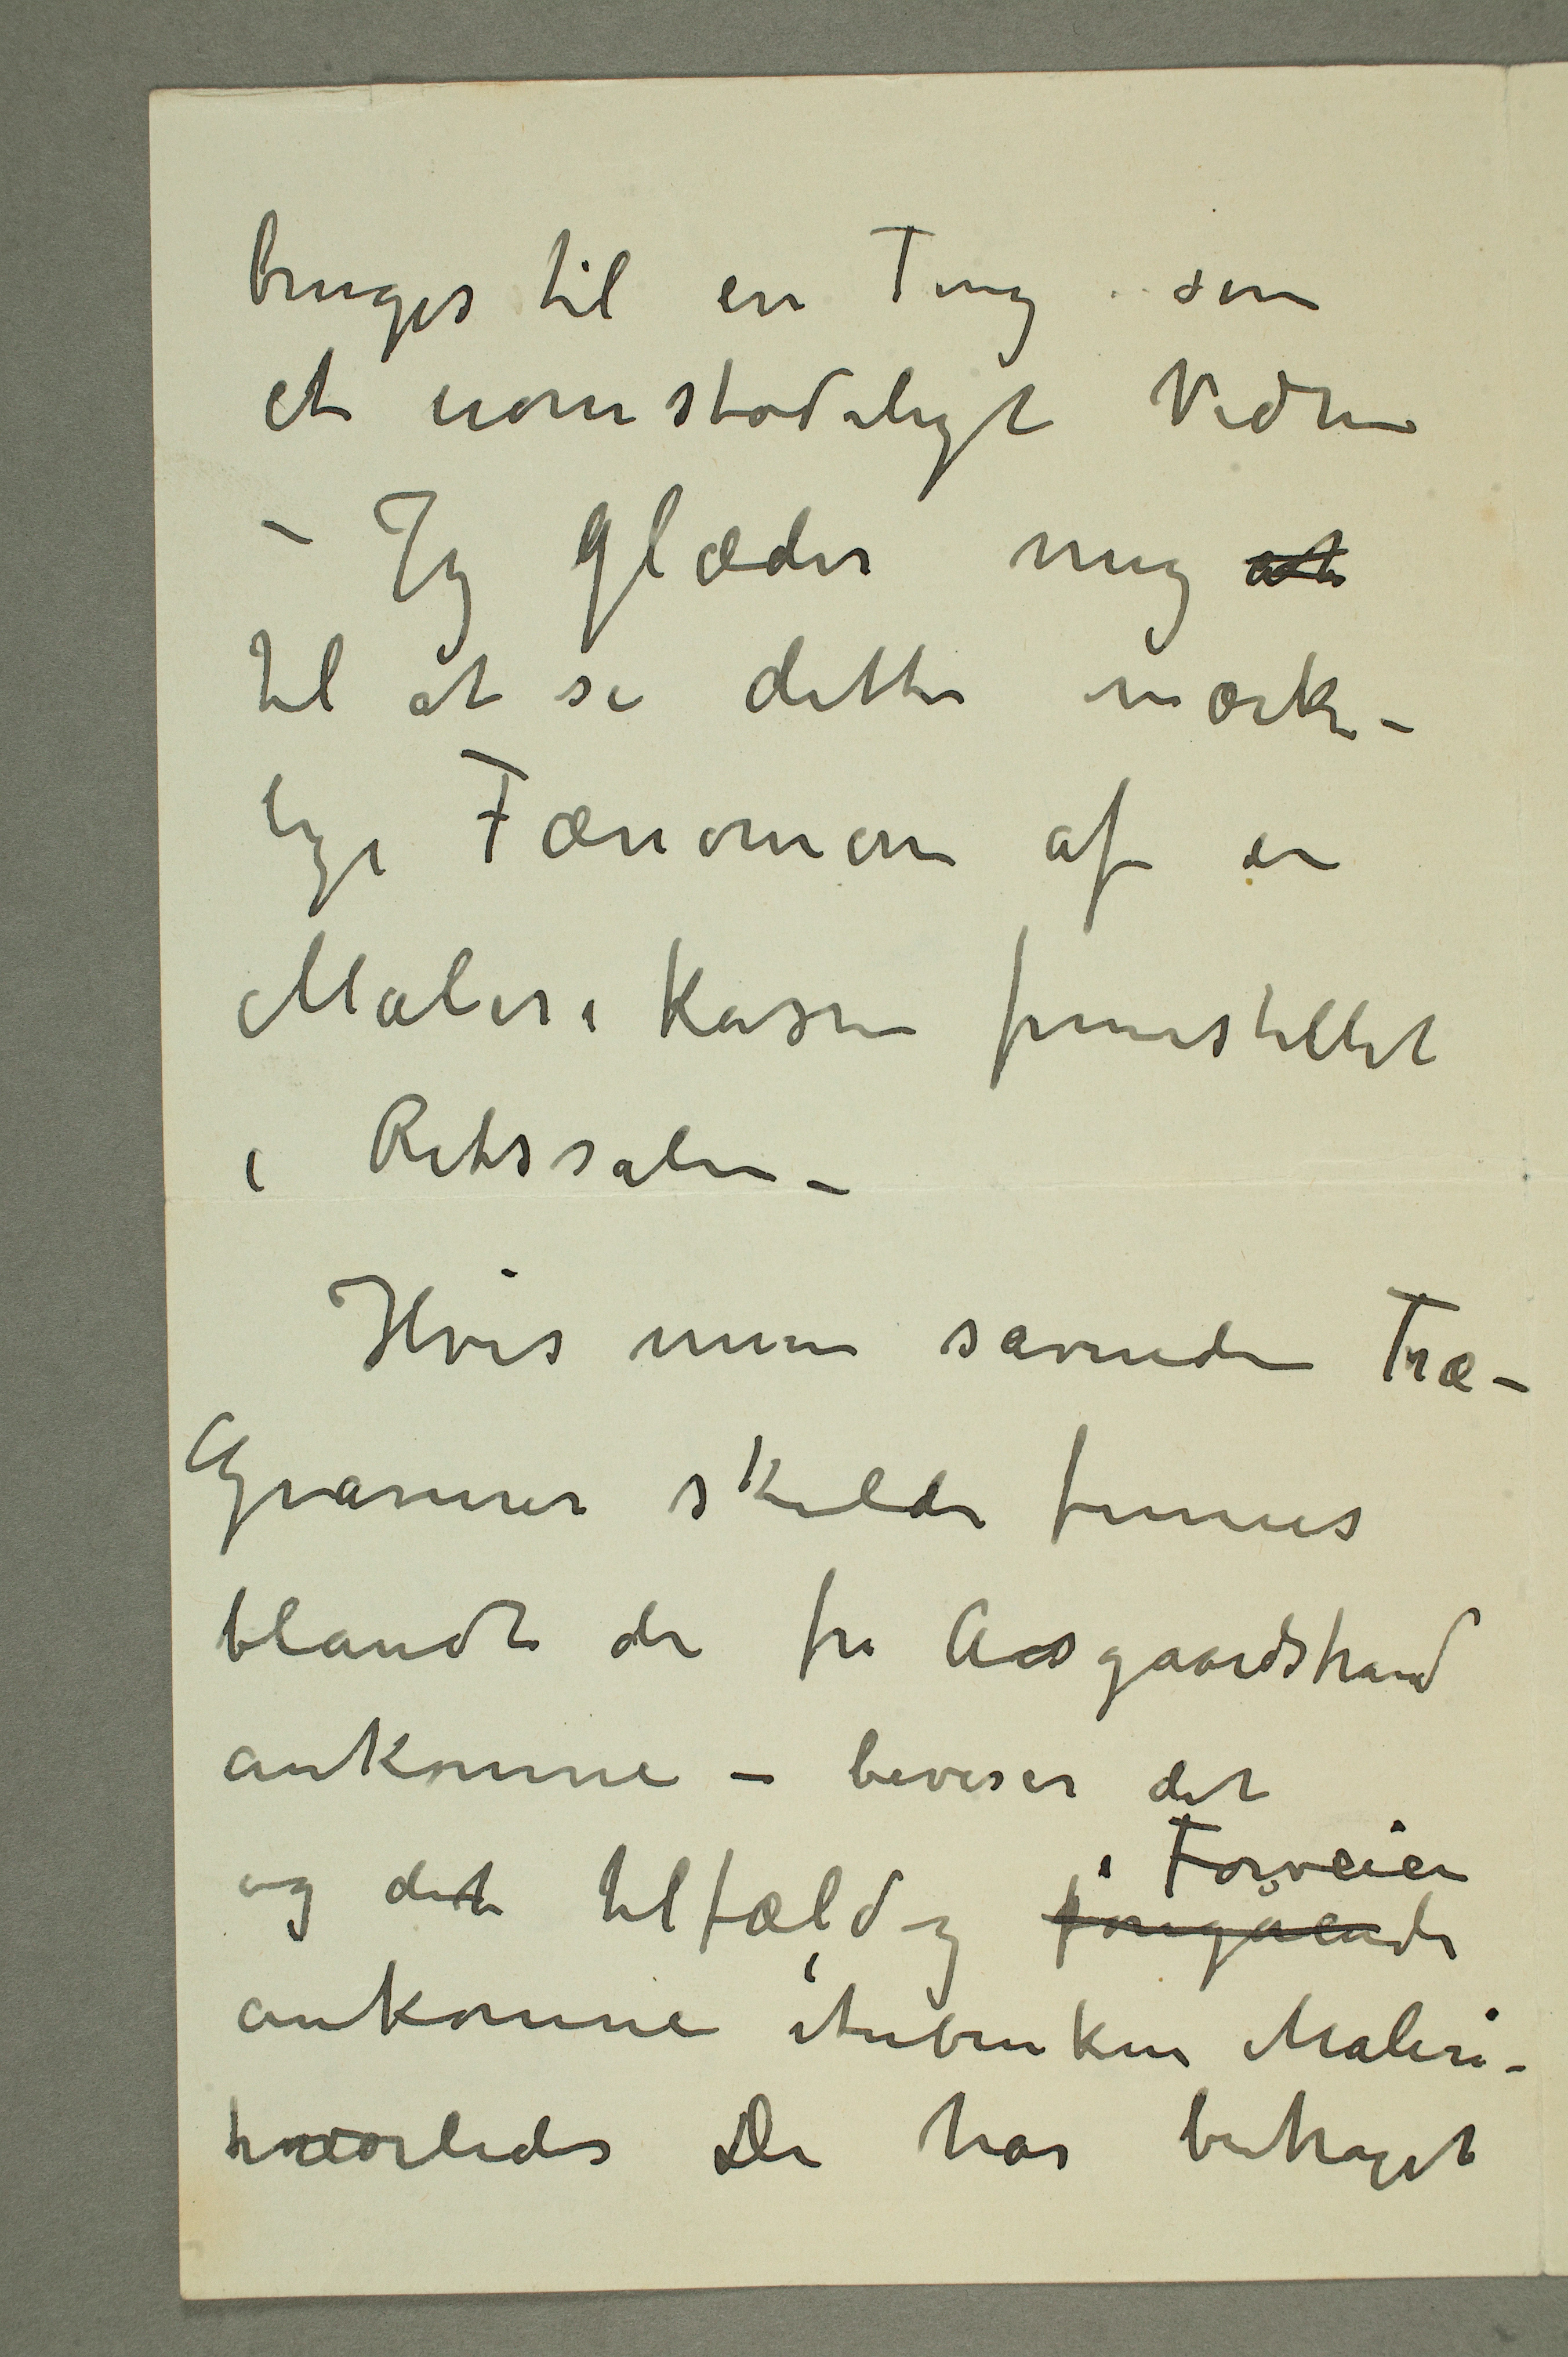 bruges til en Ting som
et uomstødeligt Vidne
– Jeg glæder mig at
til at se dette mærke-
lige Fænomen af en
Maleri Kasse fremstillet
i Retssalen –
Hvis mine savnede Træ-
Gravurer skulde finnes
blandt de fra Aasgaardstrand
ankomne – beviser det
og det tilfældig i Forveien
foregåaende
ankomne itubrukne Maleri –
hvorledes De har betraget